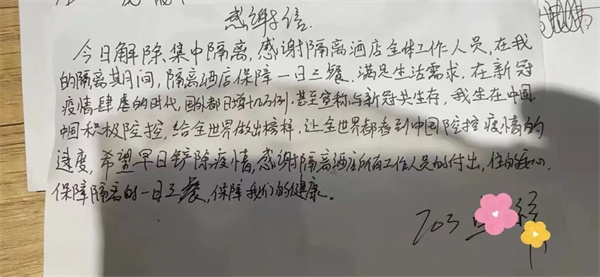 感谢信
今日解除集中隔离，感谢隔离酒店全体工作人员，在我
的隔离其间，隔离酒店保障一日三餐，满足生活需求，在新冠
疫情肆虐的时代，国外都日增十几万例，甚至宣称与新冠共生存，我生在中国
中国积极防控，给全世界做出榜样，让全世界都看到中国防控疫情的
速度，希望早日铲除疫情，感谢隔离酒店所有工作人员的付出，住的安心
保障隔离的一日三餐，保障我们的健康。
703